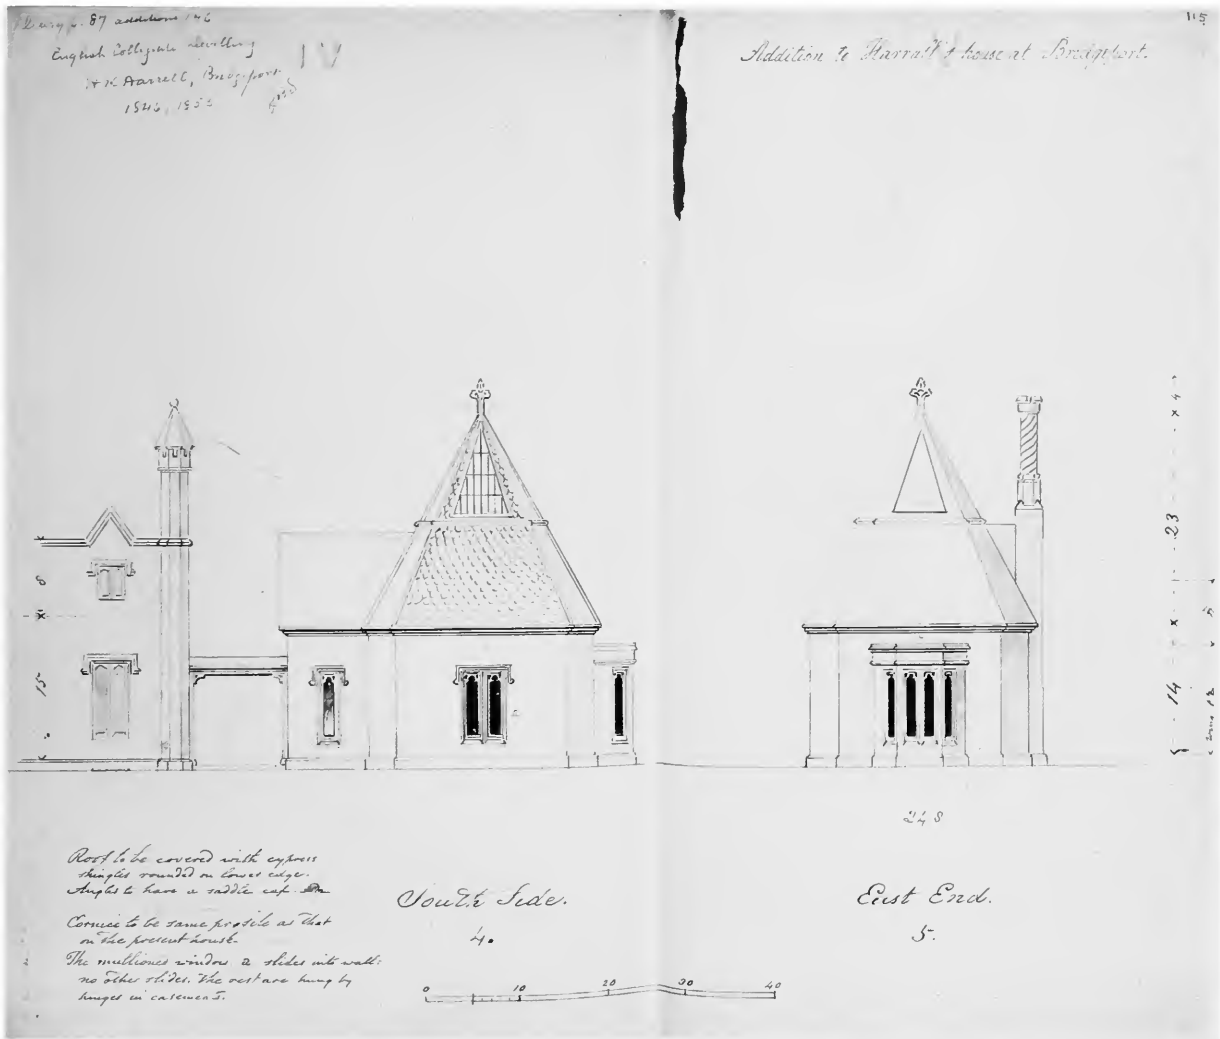 Diary p. 87 additions 146
English Collegiate dwelling
H K Harrell, Bridgeport
1846, 1855
IV
115
Addition to Harrall's house at Bridgeport.
8
15
4
23
14
12
248
Roof to be covered with cypress
shingles rounded on lower edge.
Angles to have a saddle cap.
Cornice to be same profile as that
on the present house.
The mullioned window a slides into wall:
no other slides. The rest are hung by
hinges in casement.
South Side.
4.
East End.
5.
0 10 20 30 40